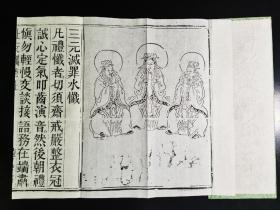 三元滅罪水懺
凡禮懺者切須齋戒嚴整衣冠
誠心定氣叩齒演音然後朝禮
慎勿輕慢交談接語務在端肅